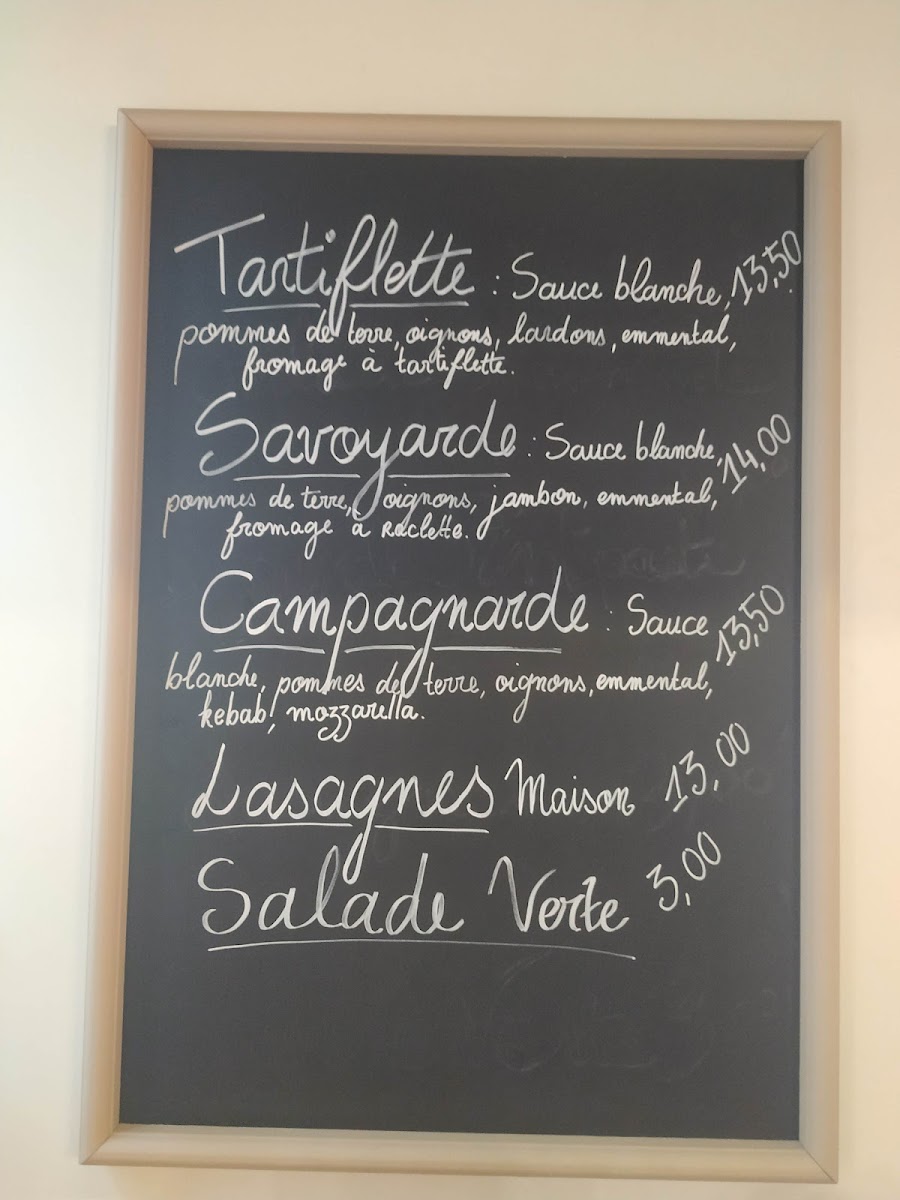 Tartiflette : Sauce blanche, 13,50
pommes de terre, oignons, lardons, emmental,
fromage à tartiflette.
Savoyarde : Sauce blanche, 14,00
pommes de terre, oignons, jambon, emmental,
fromage à raclette.
Campagnarde : Sauce 13,50
blanche, pommes de terre, oignons, emmental,
kebab, mozzarella.
Lasagnes Maison 13,00
Salade Verte 3,00